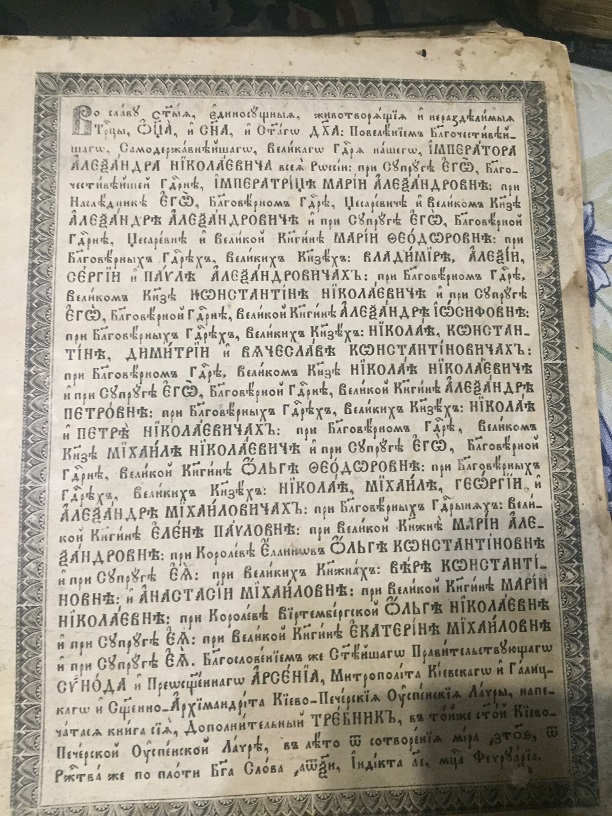 Во сла́ву ст҃ы́ѧ, є҆диносꙋ́щныѧ, животворѧ́щїѧ и҆ нераздѣ́лимыѧ
Трⷪ҇цы, Ѻ҆ц҃а̀, и҆ Сн҃а, и҆ Ст҃а́гѡ Дх҃а: Повелѣ́нїемъ Благочести́вѣй-
шагѡ, Самодержа́внѣйшагѡ, Вели́кагѡ Гдⷭ҇рѧ на́шегѡ, І҆МПЕРА́ТОРА
А҆ЛЕѮА́НДРА НЇКОЛА́ЕВИЧА всеѧ̀ Рѡссі́и: при Сꙋпрꙋ́гѣ Є҆ГѠ̀, Благо-
чести́вѣйшей Гдⷭ҇рнѣ, І҆МПЕРАТРИ́ЦѢ МАРІ́И А҆ЛЕѮА́НДРОВНѢ: при
Наслѣ́дникѣ Є҆ГѠ̀, Бл҃говѣ́рномъ Гдⷭ҇рѣ, Цесаре́вичѣ и҆ Вели́комъ Кн҃зѣ
А҆ЛЕѮА́НДРѢ А҆ЛЕѮА́НДРОВИЧѢ и҆ при Сꙋпрꙋ́гѣ Є҆ГѠ̀, Бл҃говѣ́рной
Гдⷭ҇рнѣ, Цесаре́внѣ и҆ Вели́кой Кн҃ги́нѣ МАРІ́И ѲЕѠ́ДѠРОВНѢ: при
Бл҃говѣ́рныхъ Гдⷭ҇рѣхъ, Вели́кихъ Кн҃зѣхъ: ВЛАДИ́МІРѢ, А҆ЛЕѮІ́И,
СЕ́РГІИ и҆ ПА́VЛѢ А҆ЛЕѮА́НДРОВИЧАХЪ: при Бл҃говѣ́рномъ Гдⷭ҇рѣ,
Вели́комъ Кн҃зѣ КѠНСТАНТІ́НѢ НЇКОЛА́ЕВИЧѢ и҆ при Сꙋпрꙋ́гѣ
Є҆ГѠ̀, Бл҃говѣ́рной Гдⷭ҇рнѣ, Вели́кой Кн҃ги́нѣ А҆ЛЕѮА́НДРѢ І҆Ѡ́СИФОВНѢ:
при Бл҃говѣ́рныхъ Гдⷭ҇рѣхъ, Вели́кихъ Кн҃зѣхъ: НЇКОЛА́Ѣ, КѠНСТАН-
ТІ́НѢ, ДИМИ́ТРІИ и҆ ВѦЧЕСЛА́ВѢ КѠНСТАНТІ́НОВИЧАХЪ:
при Бл҃говѣ́рномъ Гдⷭ҇рѣ, Вели́комъ Кн҃зѣ НЇКОЛА́Ѣ НЇКОЛА́ЕВИЧѢ
и҆ при Сꙋпрꙋ́гѣ Є҆ГѠ̀, Бл҃говѣ́рной Гдⷭ҇рнѣ, Вели́кой Кн҃ги́нѣ А҆ЛЕѮА́НДРѢ
ПЕТРО́ВНѢ: при Бл҃говѣ́рныхъ Гдⷭ҇рѣхъ, Вели́кихъ Кн҃зѣхъ: НЇКОЛА́Ѣ
и҆ ПЕТРѢ̀ НЇКОЛА́ЕВИЧАХЪ: при Бл҃говѣ́рномъ Гдⷭ҇рѣ, Вели́комъ
Кн҃зѣ МЇХАИ́ЛѢ НЇКОЛА́ЕВИЧѢ и҆ при Сꙋпрꙋ́гѣ Є҆ГѠ̀, Бл҃говѣ́рной
Гдⷭ҇рнѣ, Вели́кой Кн҃ги́нѣ Ѻ҆́ЛЬГѢ ѲЕѠ́ДѠРОВНѢ: при Бл҃говѣ́рныхъ
Гдⷭ҇рѣхъ, Вели́кихъ Кн҃зѣхъ: НЇКОЛА́Ѣ, МЇХАИ́ЛѢ, ГЕѠ́РГІИ и҆
А҆ЛЕѮА́НДРѢ МЇХА́ИЛОВИЧАХЪ: при Бл҃говѣ́рныхъ Гдⷭ҇рынѧхъ: Вели́-
кой Кн҃ги́нѣ Є҆ЛЕ́НѢ ПА́VЛОВНѢ: при Вели́кой Кнѧжнѣ̀ МАРІ́И А҆ЛЕ-
ѮА́НДРОВНѢ: при Короле́вѣ Є҆́ллинѡвъ Ѻ҆́ЛЬГѢ КѠНСТАНТІ́НОВНѢ
и҆ при Сꙋпрꙋ́гѣ Є҆Ѧ̀: при Вели́кихъ Кнѧжна́хъ: ВѢ́РѢ КѠНСТАНТІ́-
НОВНѢ: и҆ А҆НАСТАСІ́И МЇХА́ИЛОВНѢ: при Вели́кой Кн҃ги́нѣ МАРІ́И
НЇКОЛА́ЕВНѢ: при Короле́вѣ Віртембе́ргской Ѻ҆́ЛЬГѢ НЇКОЛА́ЕВНѢ
и҆ при Сꙋпрꙋ́гѣ Є҆Ѧ̀: при Вели́кой Кн҃ги́нѣ Є҆КАТЕРІ́НѢ МЇХА́ИЛОВНѢ
и҆ при Сꙋпрꙋ́гѣ Є҆Ѧ̀. Благослове́нїемъ же Ст҃ѣ́йшагѡ Прави́тельствꙋющагѡ
СѴНО́ДА и҆ Преѡсщ҃е́ннагѡ А҆РСЕ́НІА, Митрополі́та Кі́евскагѡ и҆ Га́лиц-
кагѡ и҆ Сщ҃е́нно-А҆рхїмандрі́та Кі́ево-Пече́рскїѧ Оу҆спе́нскїѧ Ла́ѵры, напе-
ча́тасѧ кни́га сїѧ̀, Дополни́тельный ТРЕ́БНИКЪ, въ то́йже ст҃о́й Кі́ево-
Пече́рской Оу҆спе́нской Ла́ѵрѣ, въ лѣ́то ѿ сотворе́нїѧ мі́ра ҂зтѯв, ѿ
Ржⷭ҇тва́ же по пло́ти Бг҃а Сло́ва ҂аѡѯи, І҆ндї́кта аі, мцⷭ҇а Феврꙋа́рїа.